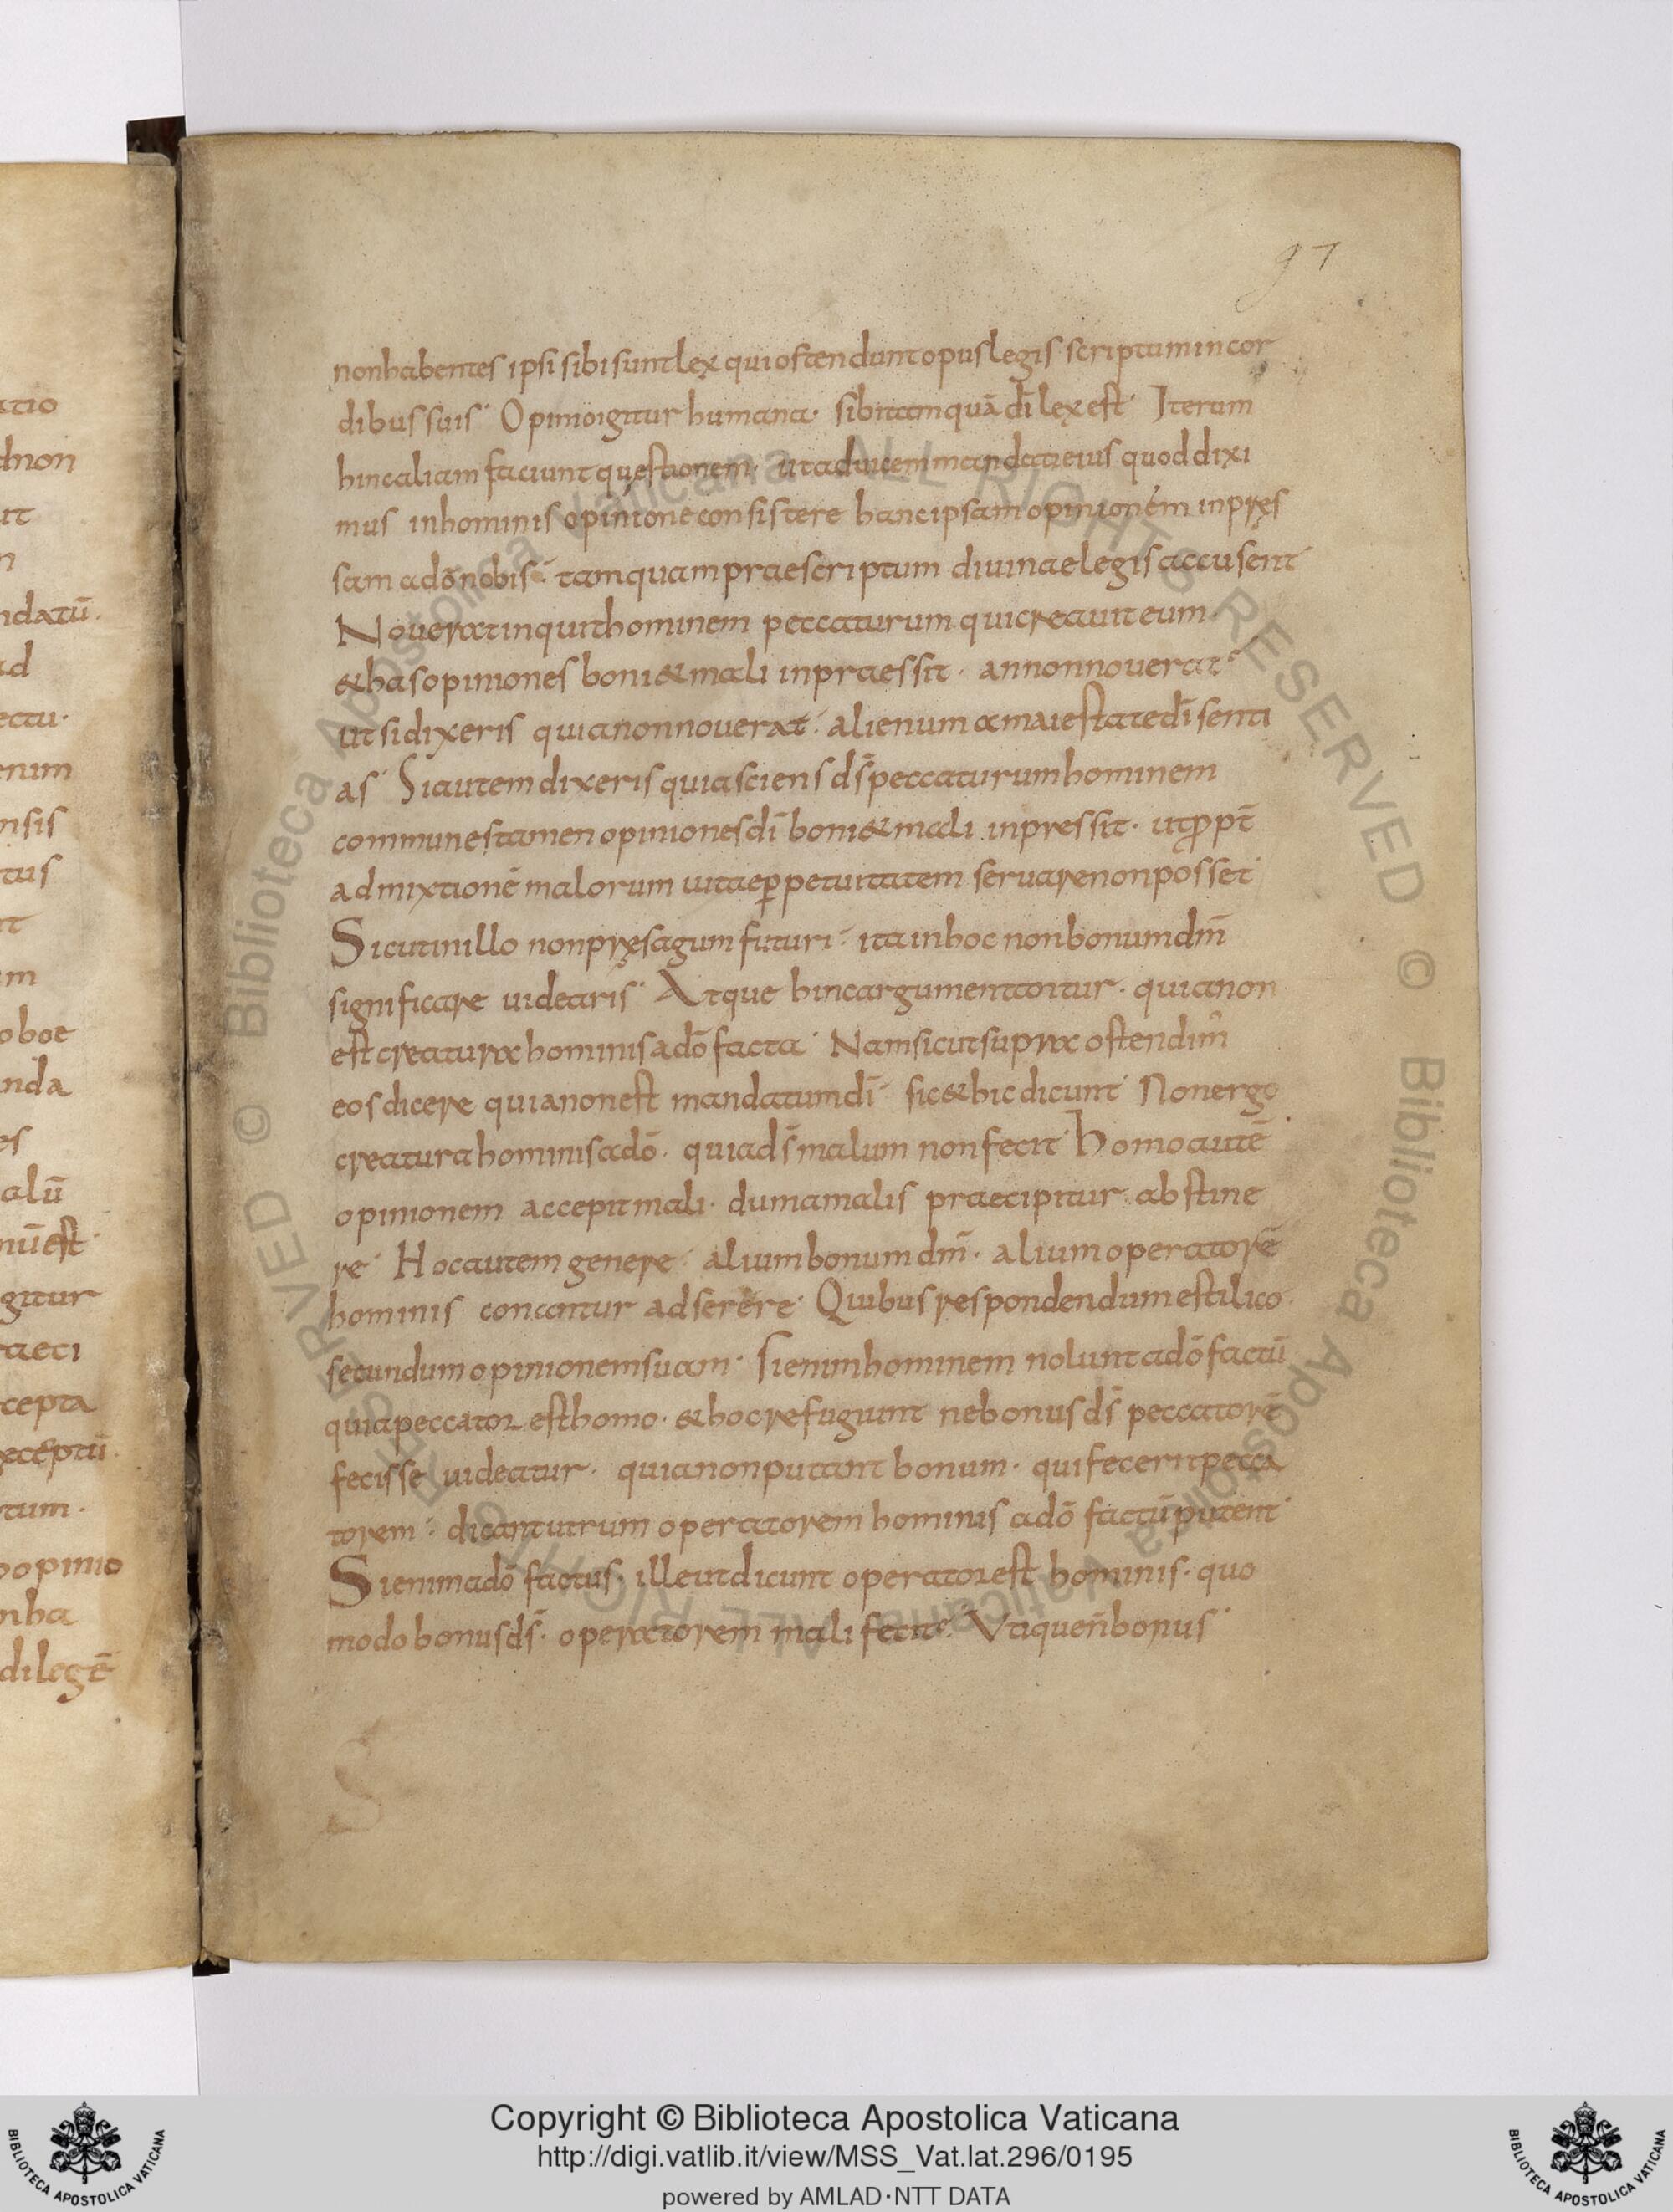 atio
dnon
ut
n
ndatū.
ad
ectu.
enim
nsis
tus
it
im
oboe
nda
es
alū
nū est
gitur
raeci
cepta
ecceptū.
tum.
oopinio
nba
dilegē
97
non habentes ipsi sibi sunt lex qui ostendunt opus legis scriptum in cor
dibus suis. Opinio igitur humana. sibi tamquā dī lex est. Iterum
hinc aliam faciunt quęstionem. ut ad uicem mandati eius quod dixi
mus in hominis opinione consistere hanc ipsam opinionem inpręs
sam a dō nobis. tamquam praescriptum diuinae legis accusent
Nouerat inquit hominem peccaturum qui creauit eum.
& has opiniones boni & mali inpraessit. an non nouerat
ut si dixeris quia non nouerat. alienum a maiestate dī senti
as. Si autem dixeris quia sciens dš peccaturum hominem
communes tamen opiniones dī boni & mali inpressit. ut ꝓpt̄
admixtionē malorum uitae ꝑpetuitatem seruare non posset
Sicut in illo non pręsagum futuri. ita in hoc non bonum dm̄
significare uidearis. Atque hinc argumentantur. quia non
est creatura hominis a dō facta. Nam sicut supra ostendim̄
eos dicere quia non est mandatum dī. sic & hic dicunt. Non ergo
creatura hominis a dō. quia dš malum non fecit. Homo autē
opinionem accepit mali. dum a malis praecipitur abstine
re. Hoc autem genere. alium bonum dm̄. alium operatorē
hominis conantur adserere. Quibus respondendum est ilico
secundum opinionem suam. Si enim hominem nolunt a dō factū
quia peccator est homo. & hoc refugiunt ne bonus dš peccatorē
fecisse uideatur. quia non putant bonum. qui fecerit pecca
torem. dicant utrum operatorem hominis a dō factū putent
Si enim a dō factus. ille ut dicunt operator est hominis. quo
modo bonus dš. operatorem mali fecit. Vtique n̄ bonus.
S
© Biblioteca Apostolica Vaticana ALL RIGHTS RESERVED © Biblioteca Apostolica Vaticana ALL RIGHTS RESERVED
BIBLIOTECA APOSTOLICA VATICANA
Copyright © Biblioteca Apostolica Vaticana
http://digi.vatlib.it/view/MSS_Vat.lat.296/0195
powered by AMLAD·NTT DATA
BIBLIOTECA APOSTOLICA VATICANA